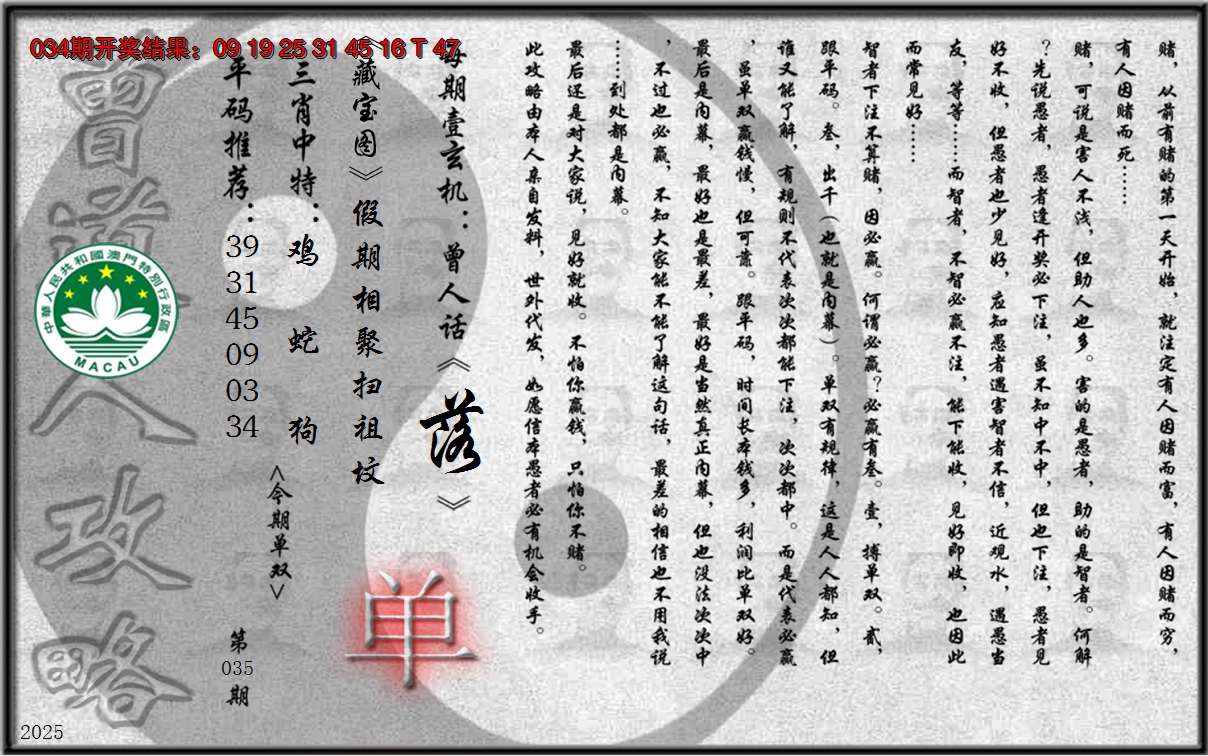 034期开奖结果：09 19 25 31 45 16 T 47
赌，从前有赌的第一天开始，就注定有人因赌而富，有人因赌而穷，
有人因赌而死……
赌，可说是害人不浅，但助人也多。害的是愚者，助的是智者。何解
？先说愚者，愚者逢开奖必下注，虽不知中不中，但也下注，愚者见
好不收，但愚者也少见好，应知愚者遇害智者不信，近观水，遇愚当
友，等等……而智者，不智必赢不注，能下能收，见好即收，也因此
而常见好……
智者下注不算赌，因必赢。何谓必赢？必赢有叁。壹，搏单双。贰，
跟平码。叁，出千（也就是内幕）。单双有规律，这是人人都知，但
谁又能了解，有规则不代表次次都能下注，次次都中。而是代表必赢
，虽单双赢钱慢，但可靠。跟平码，时间长本钱多，利润比单双好。
最后是内幕，最好也是最差，最好是当然真正内幕，但也没法次次中
，不过也必赢，不知大家能不能了解这句话，最差的相信也不用我说
……到处都是内幕。
最后还是对大家说，见好就收。不怕你赢钱，只怕你不赌。
此攻略由本人亲自发料，世外代发，如愿信本愚者必有机会收手。
每期壹玄机：曾人话《落》
《藏宝图》假期相聚扫祖坟
单
三肖中特：鸡 蛇 狗
<今期单双>
平码推荐：39 31 45 09 03 34
第035期
曾道人攻略
中華人民共和國澳門特別行政區
MACAU
2025